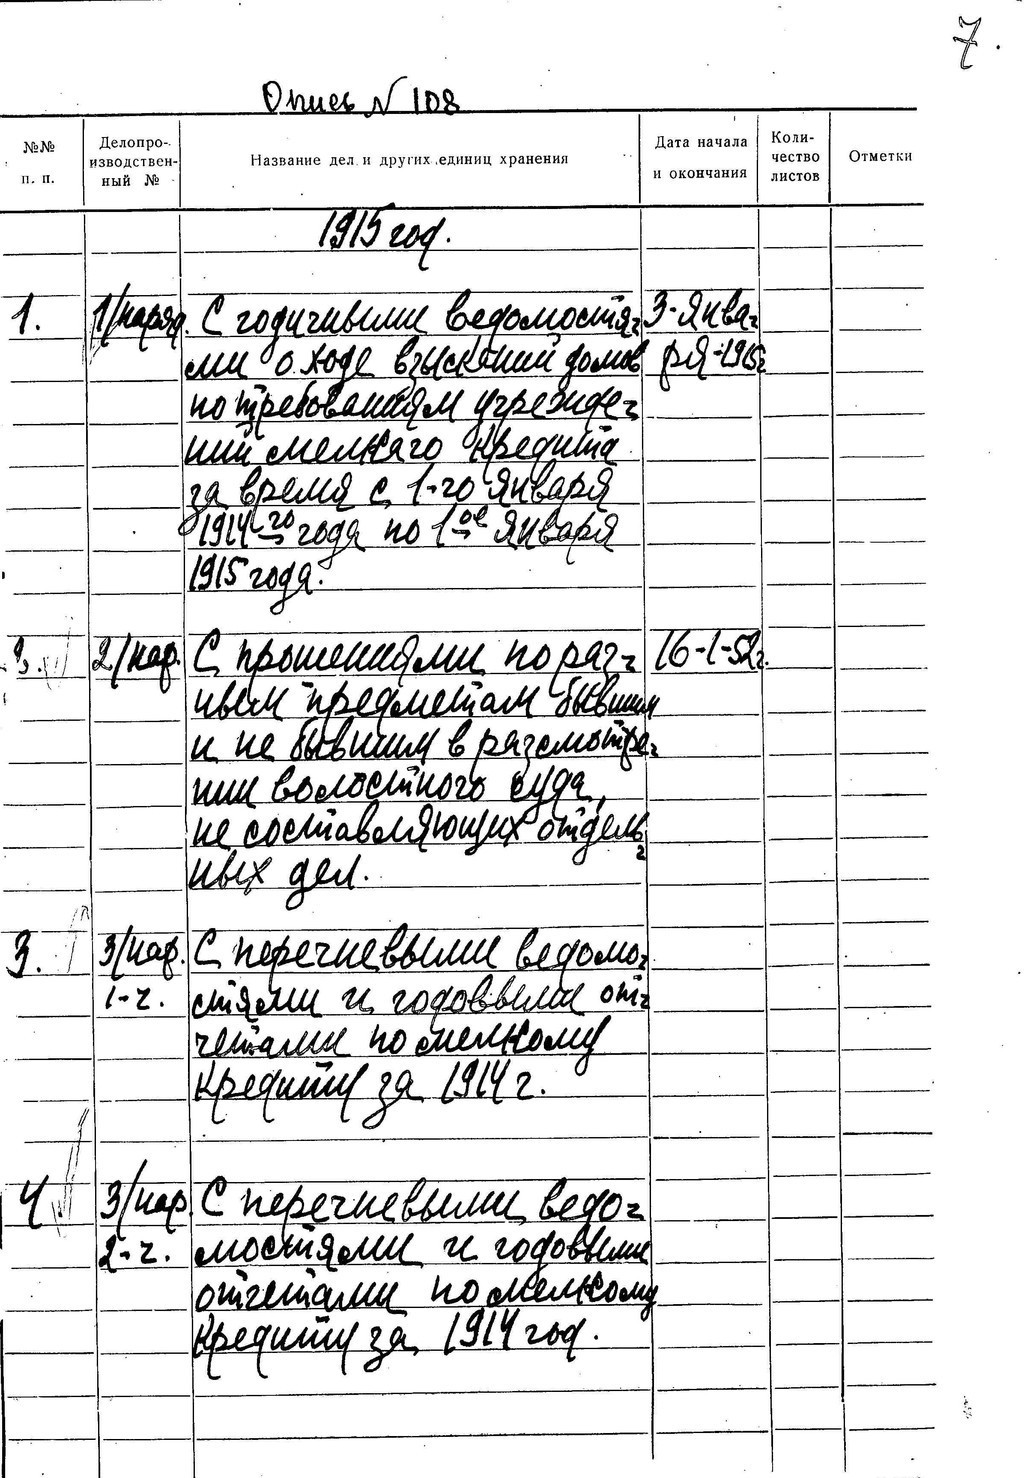 7.
Опись № 108
№№ п. п.
Делопро-изводствен-ный №
Название дел и других единиц хранения
Дата начала и окончания
Коли-чество листов
Отметки
1915 год.
1. 1/наряд. С годичными ведомостя- 3-Янва-
ми о ходе взысканий домов ря-1915г
по требованиям учрежде-
ний мелкаго кредита
за время с 1-го Января
1914-го года по 1ое Января
1915 года.
2/нар. С прошениями по раз- 16-1-52г.
ным предметам бывшим
и не бывшим в разсмотре-
нии волостного суда,
не составляющих отдель-
ных дел.
3. 3/нар. С перечневыми ведомо-
1-ч. стями и годовыми от-
четами по мелкому
кредиту за 1914 г.
4 3/нар. С перечневыми ведо-
2-ч. мостями и годовыми
отчетами по мелкому
кредиту за 1914 год.